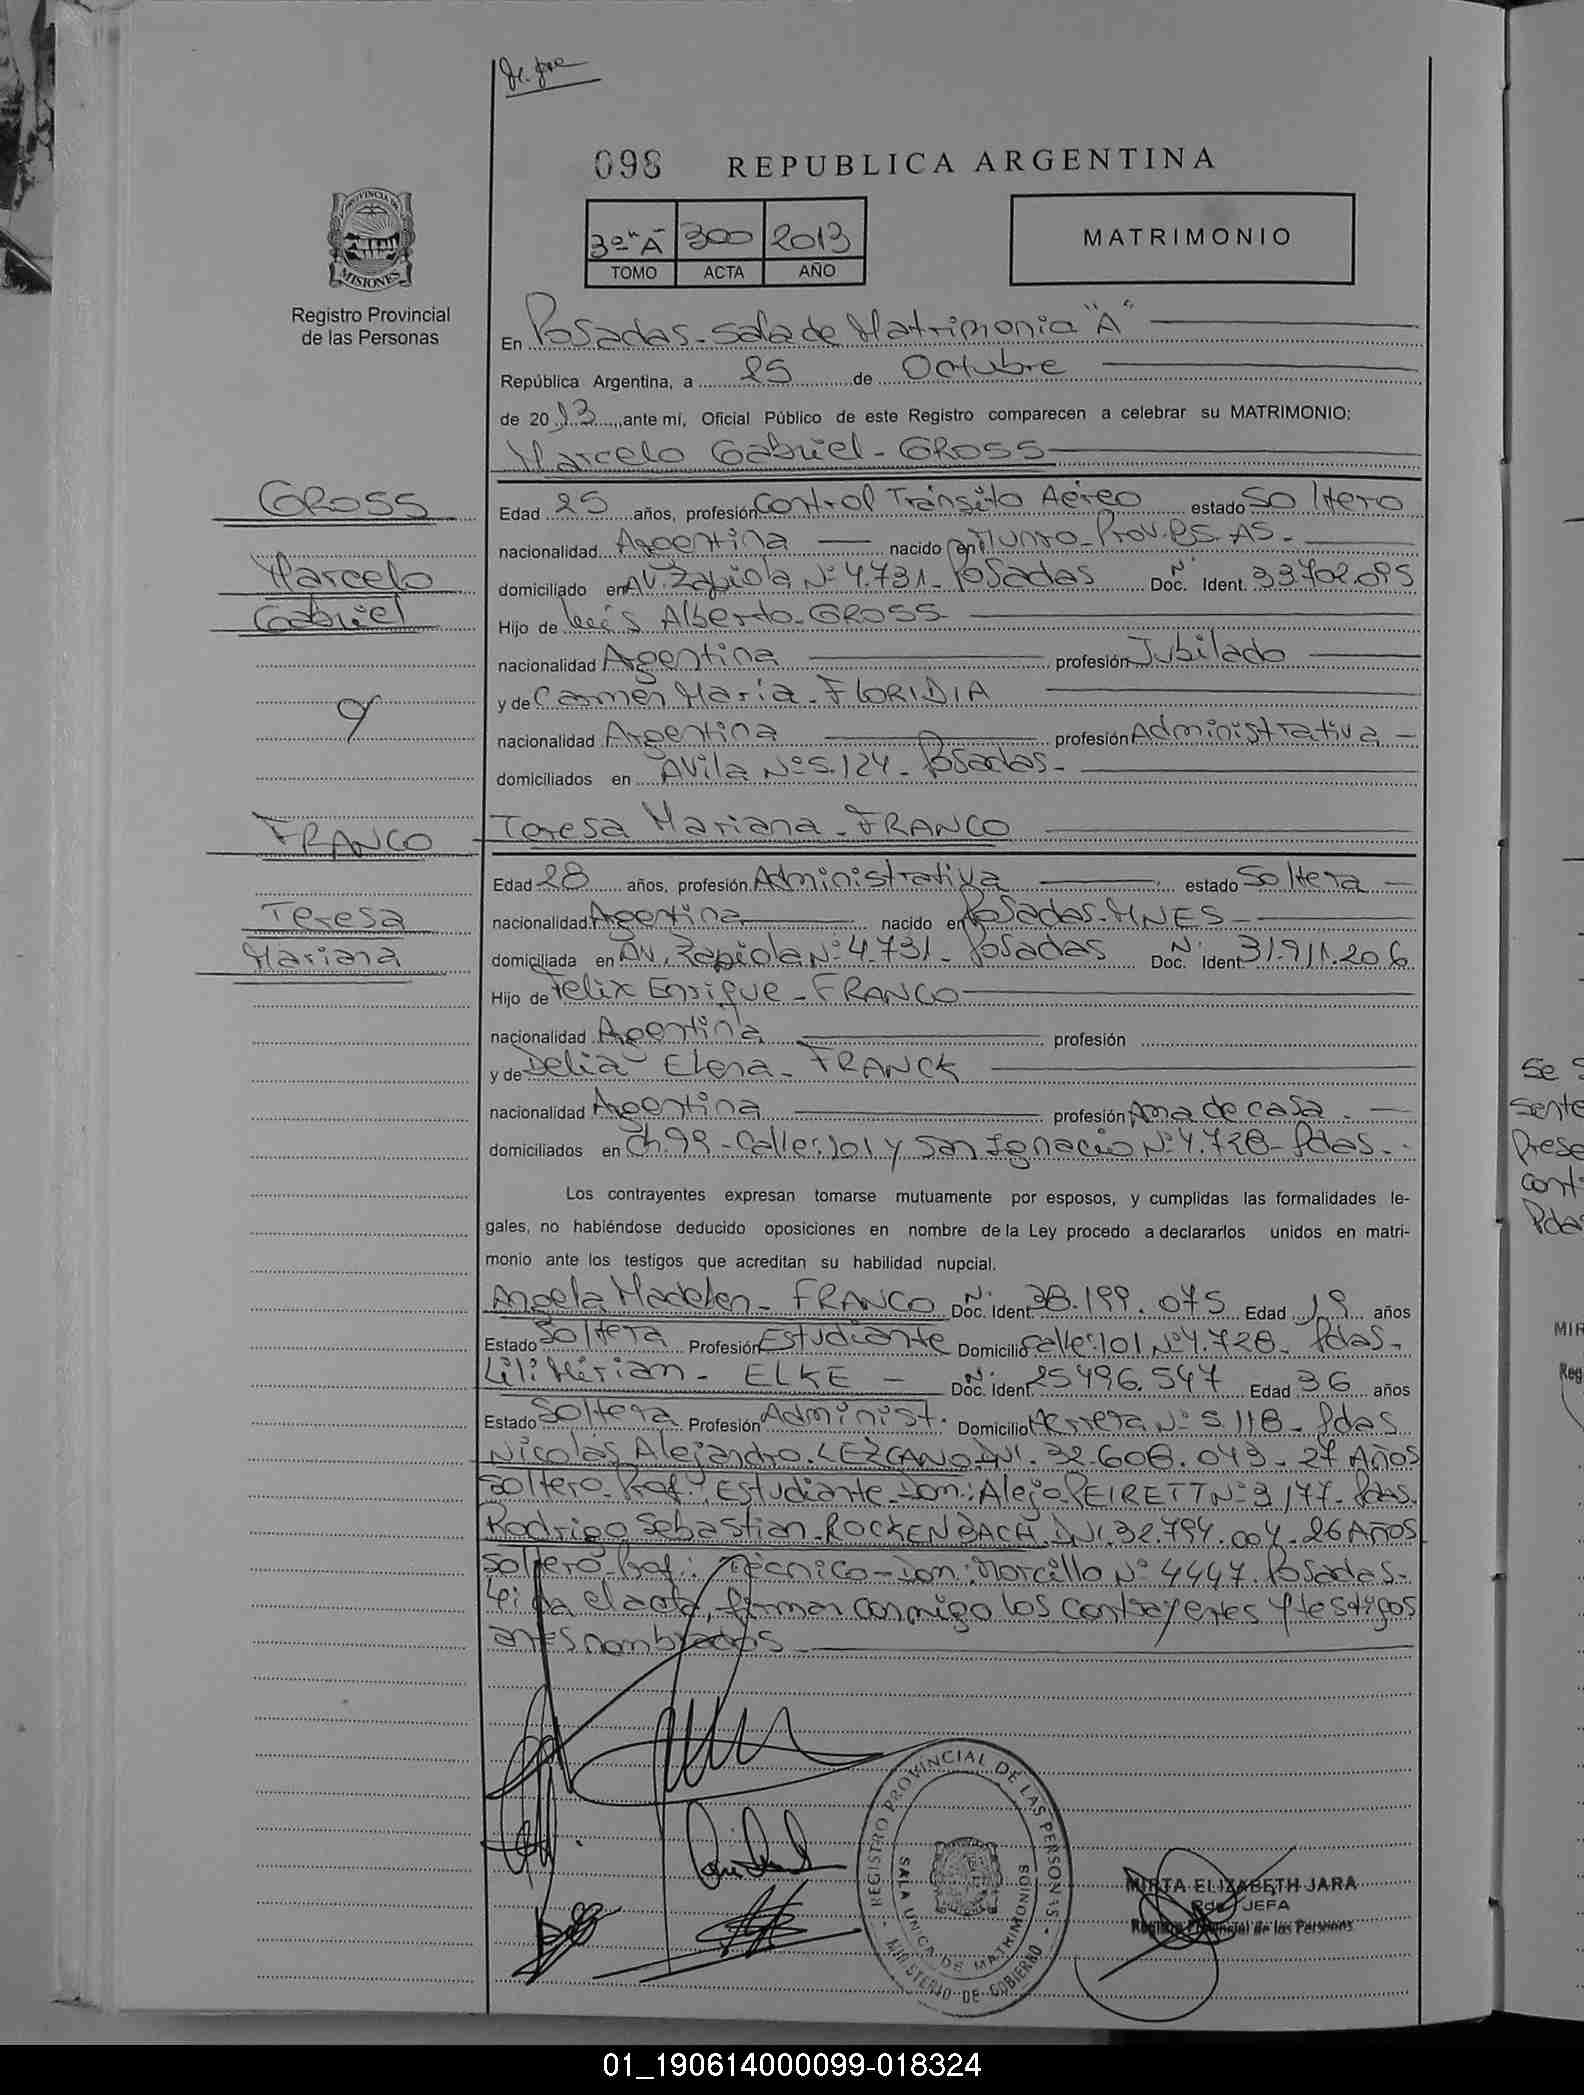 098 REPUBLICA ARGENTINA
3º "A" 300 2013
TOMO ACTA AÑO
MATRIMONIO
PROVINCIA DE
MISIONES
Registro Provincial
de las Personas
En Posadas - Sala de Matrimonio "A"
República Argentina, a 25 de Octubre
de 2013, ante mí, Oficial Público de este Registro comparecen a celebrar su MATRIMONIO:
Marcelo Gabriel - GROSS
GROSS
Marcelo
Gabriel
Edad 25 años, profesión Control Tránsito Aéreo estado Soltero
nacionalidad Argentina nacido en Munro - Prov. BS. AS.-
domiciliado en AV. Zapiola Nº 4.731 - Posadas Doc. N. Ident. 33.702.095
Hijo de Luis Alberto - GROSS
nacionalidad Argentina profesión Jubilado
y de Carmen María - FLORIDIA
nacionalidad Argentina profesión Administrativa -
domiciliados en Avila Nº 5.124 - Posadas -
FRANCO
Teresa
Mariana
Teresa Mariana - FRANCO
Edad 28 años, profesión Administrativa estado Soltera -
nacionalidad Argentina nacido en Posadas - MNES -
domiciliada en AV. Zapiola Nº 4.731 - Posadas Doc. N. Ident. 31.911.206
Hijo de Felix Enrique - FRANCO
nacionalidad Argentina profesión
y de Delia Elena - FRANCK
nacionalidad Argentina profesión Ama de casa. -
domiciliados en Ch. 99 - Calle: 101 y San Ignacio Nº 4.728 - Pdas. -
Los contrayentes expresan tomarse mutuamente por esposos, y cumplidas las formalidades le-
gales, no habiéndose deducido oposiciones en nombre de la Ley procedo a declararlos unidos en matri-
monio ante los testigos que acreditan su habilidad nupcial.
Angela Madelen - FRANCO Doc. N. Ident. 38.199.075 Edad 19 años
Estado Soltera Profesión Estudiante Domicilio Calle: 101 Nº 4.728 - Pdas -
Lili Mirian - ELKE - Doc. N. Ident. 25496.547 Edad 36 años
Estado Soltera Profesión Administ. Domicilio Herrera Nº 5.118 - Pdas
Nicolás Alejandro. LEZCANO DNI. 32.608.043 - 27 AÑOS
Soltero - Prof.: Estudiante - Dom: Alejo PEIRETT Nº 3177 - Pdas.
Rodrigo Sebastian - ROCKENBACH. DNI. 32.794.004 - 26 AÑOS
Soltero - Prof.: Técnico - Dom: Morcillo Nº 4447. Posadas -
Leida el acta, firman conmigo los contrayentes y testigos
antes nombrados
REGISTRO PROVINCIAL DE LAS PERSONAS
SALA UNICA DE MATRIMONIOS
MINISTERIO DE GOBIERNO
MIRTA ELIZABETH JARA
JEFA
Registro Provincial de las Personas
Se
Sente
Prese
cont
Pda
MIR
Reg
01_190614000099-018324